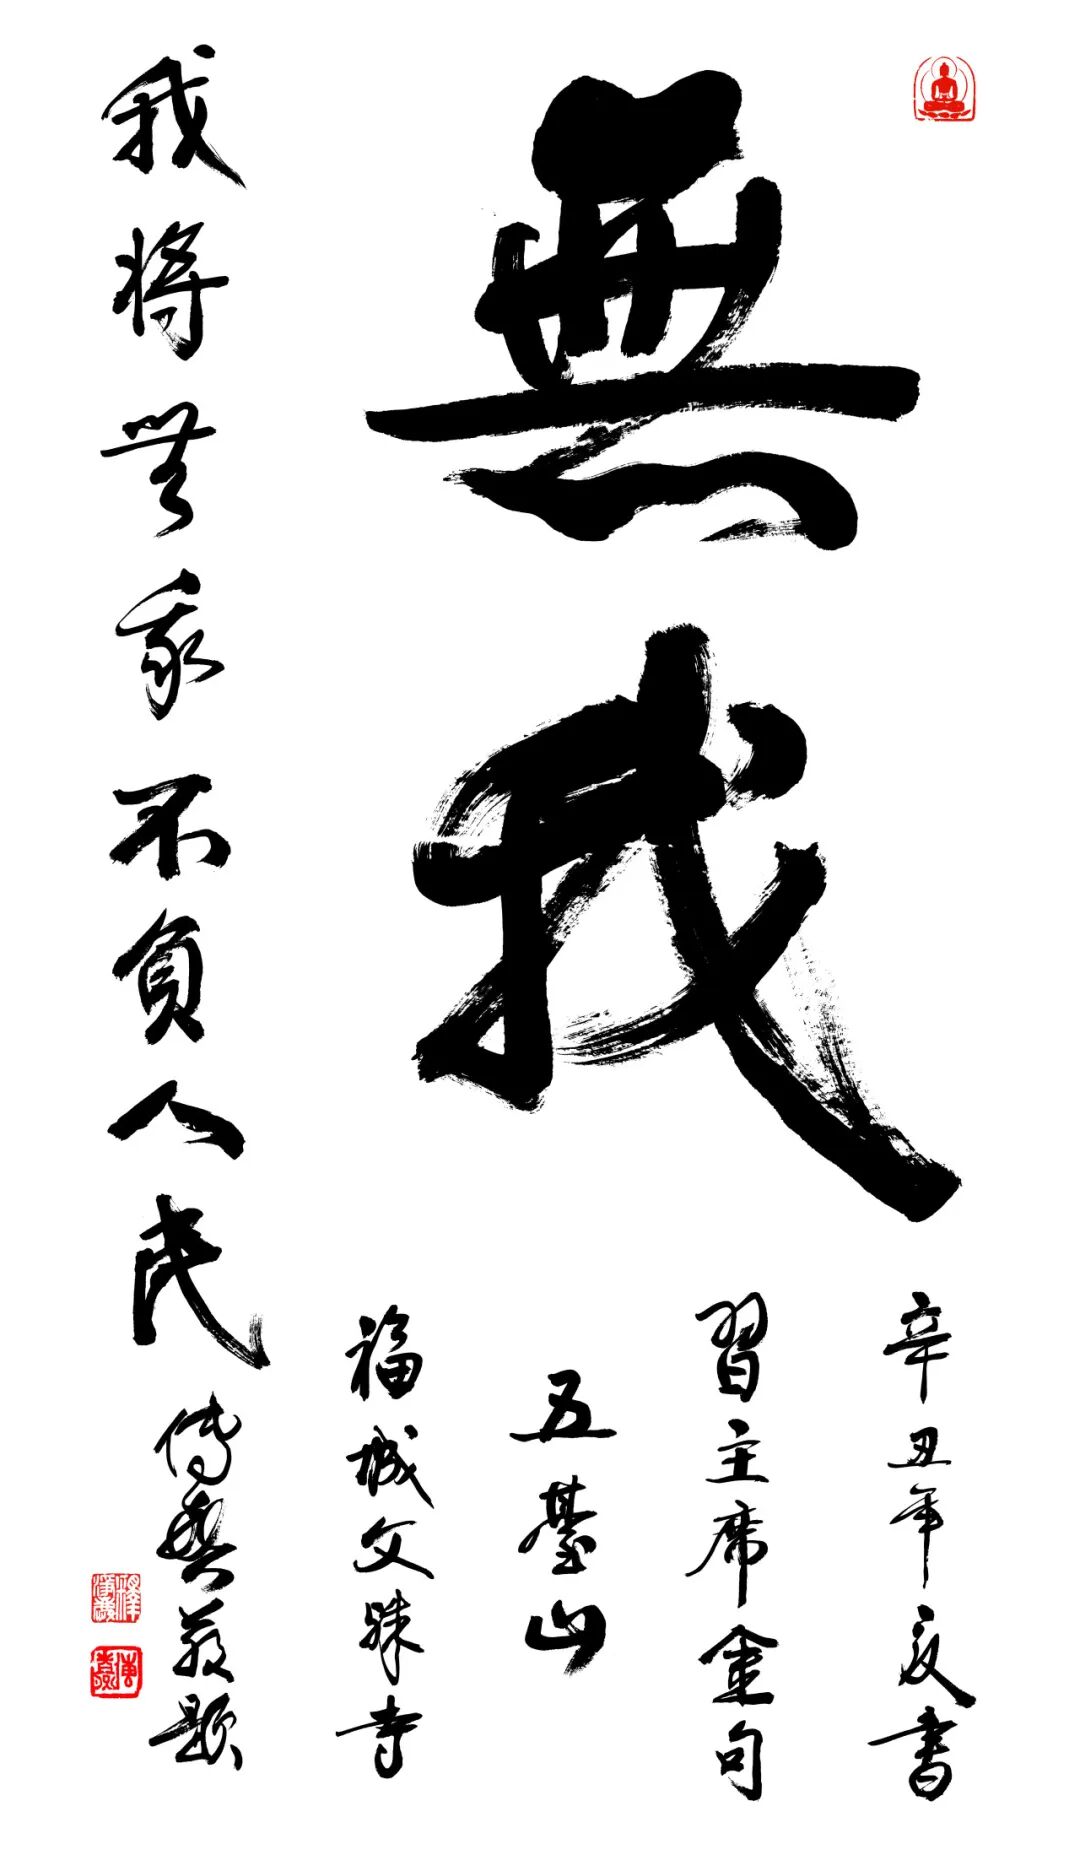 無我
辛丑年夏書
習主席金句
五臺山
福城文殊寺
我將無我不負人民
傳興敬題